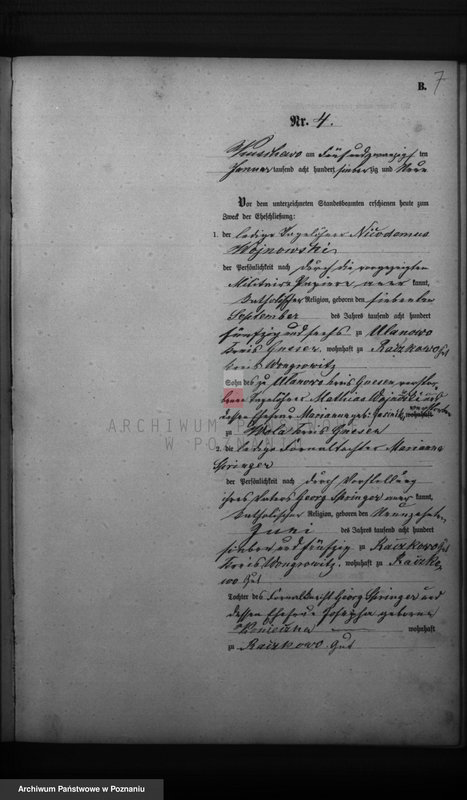 B. 7
Nr. 4.
am Fünfundzwanzigsten
Januar tausend acht hundert siebenzig und Neun
Vor dem unterzeichneten Standesbeamten erschienen heute zum
Zweck der Eheschließung:
1. der ledige Tagelöhner Nicodemus
Wojnowski
der Persönlichkeit nach durch die vorgezeigten
Militair Papiere aner kannt,
katholischer Religion, geboren den siebenten
September des Jahres tausend acht hundert
fünfzig und sechs zu Ulanowo
Kreis Gnesen, wohnhaft zu Raczkowo Gut
Kreis Wongrowitz
Sohn des zu Ulanowo Kreis Gnesen verstor-
benen Tagelöhner Mathias Wojnowski und
dessen Ehefrau Marianna geb. wohnhaft
zu Kreis Gnesen
2. die ledige Fornalstochter Marianna
Springer
der Persönlichkeit nach durch Vorstellung
ihres Vaters Georg Springer aner kannt,
katholischer Religion, geboren den Neunzehnten
Juni des Jahres tausend acht hundert
sieben und fünfzig zu Raczkowo Gut
Kreis Wongrowitz, wohnhaft zu Raczko-
wo Gut
Tochter des Fornalknecht Georg Springer und
dessen Ehefrau Josepha geborene
Konieczna wohnhaft
zu Raczkowo Gut
ARCHIWUM PAŃSTWOWE
W POZNANIU
Archiwum Państwowe w Poznaniu